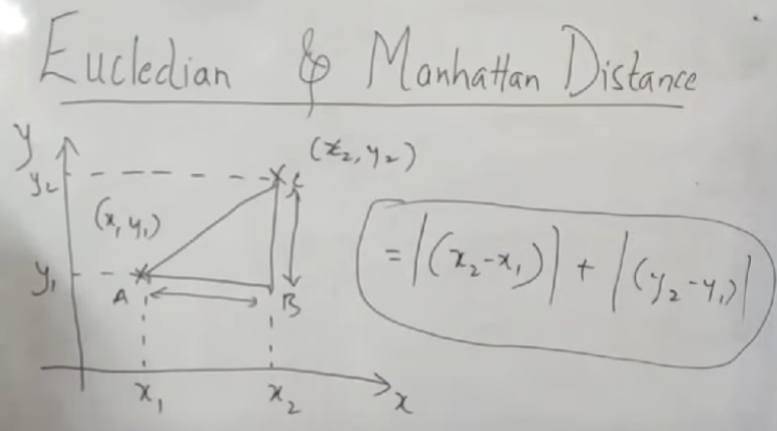 Eucledian & Manhattan Distance
y
(x₂, y₂)
y₂
C
(x, y₁)
= |(x₂-x₁)| + |(y₂-y₁)|
y₁
A
B
x₁
x₂
x